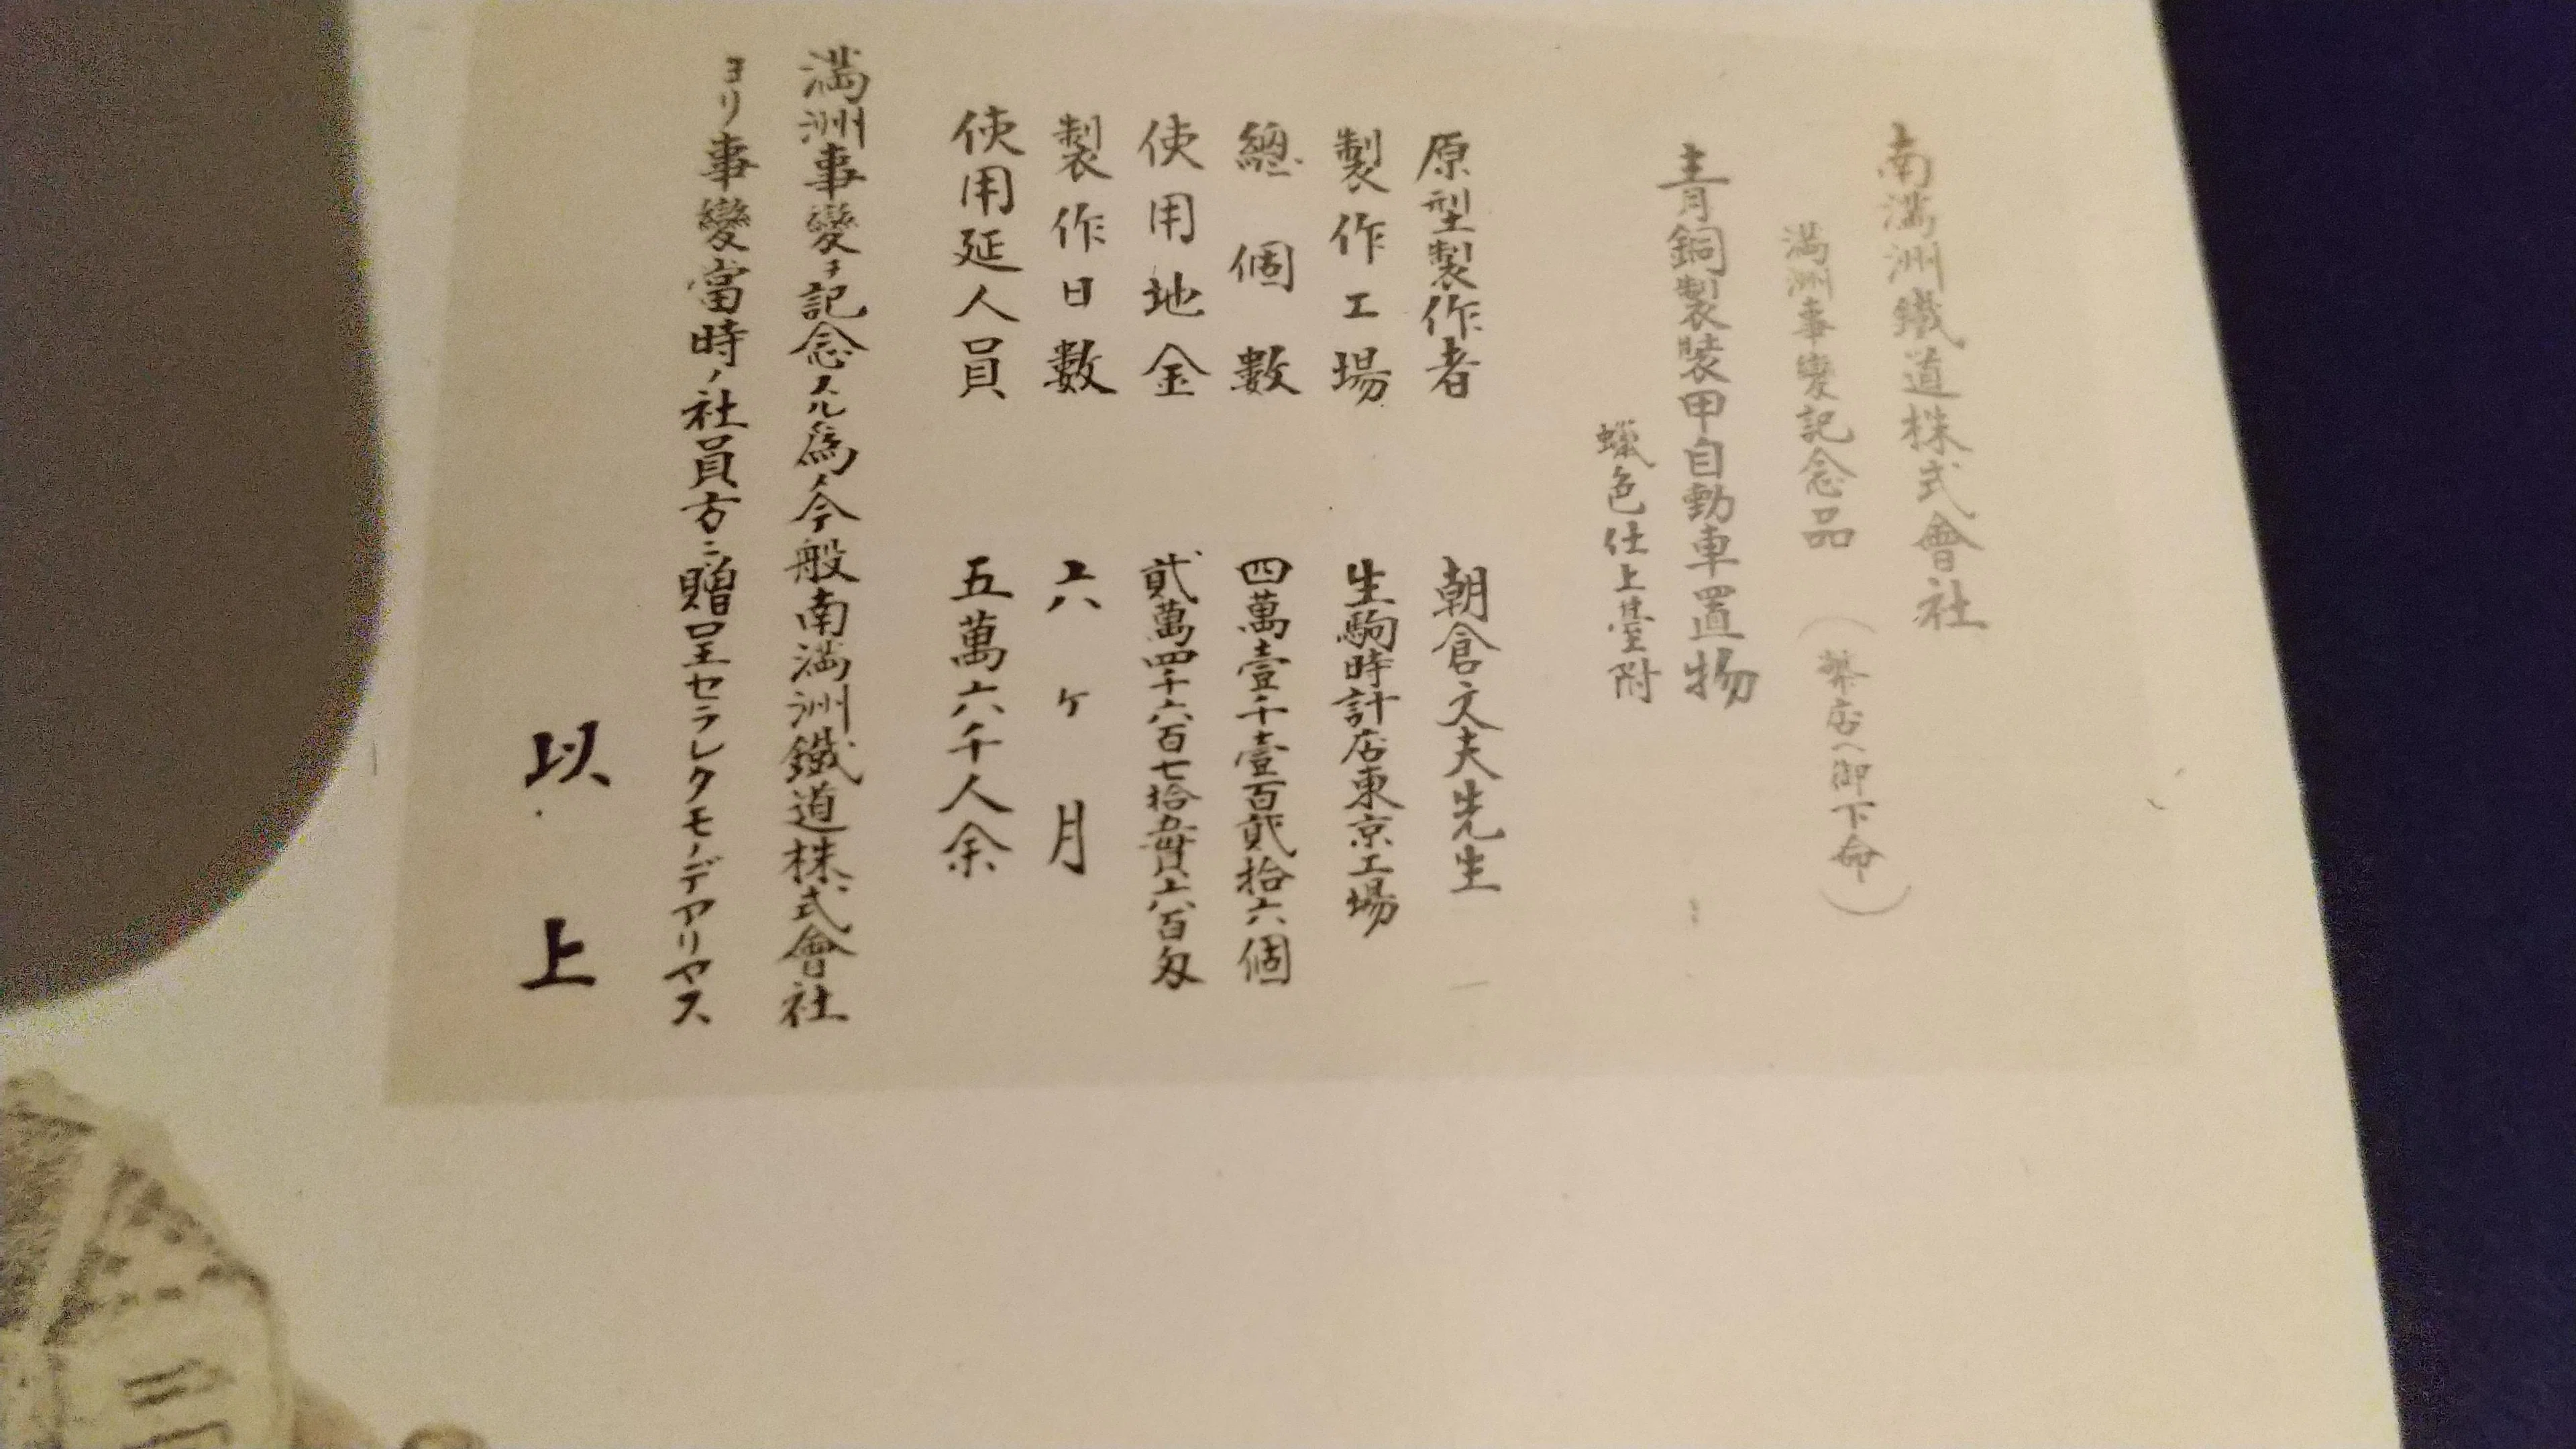 南滿洲鐵道株式會社
滿洲事變記念品（弊店ヘ御下命）
青銅製裝甲自動車置物
蠟色仕上臺附
原型製作者　朝倉文夫先生
製作工場　生駒時計店東京工場
總個數　四萬壹千壹百貳拾六個
使用地金　貳萬四千六百七拾五貫六百匁
製作日數　六ヶ月
使用延人員　五萬六千人余
滿洲事變ヲ記念スル爲メ今般南滿洲鐵道株式會社
ヨリ事變當時ノ社員方ニ贈呈セラレタモノデアリマス
以上
三